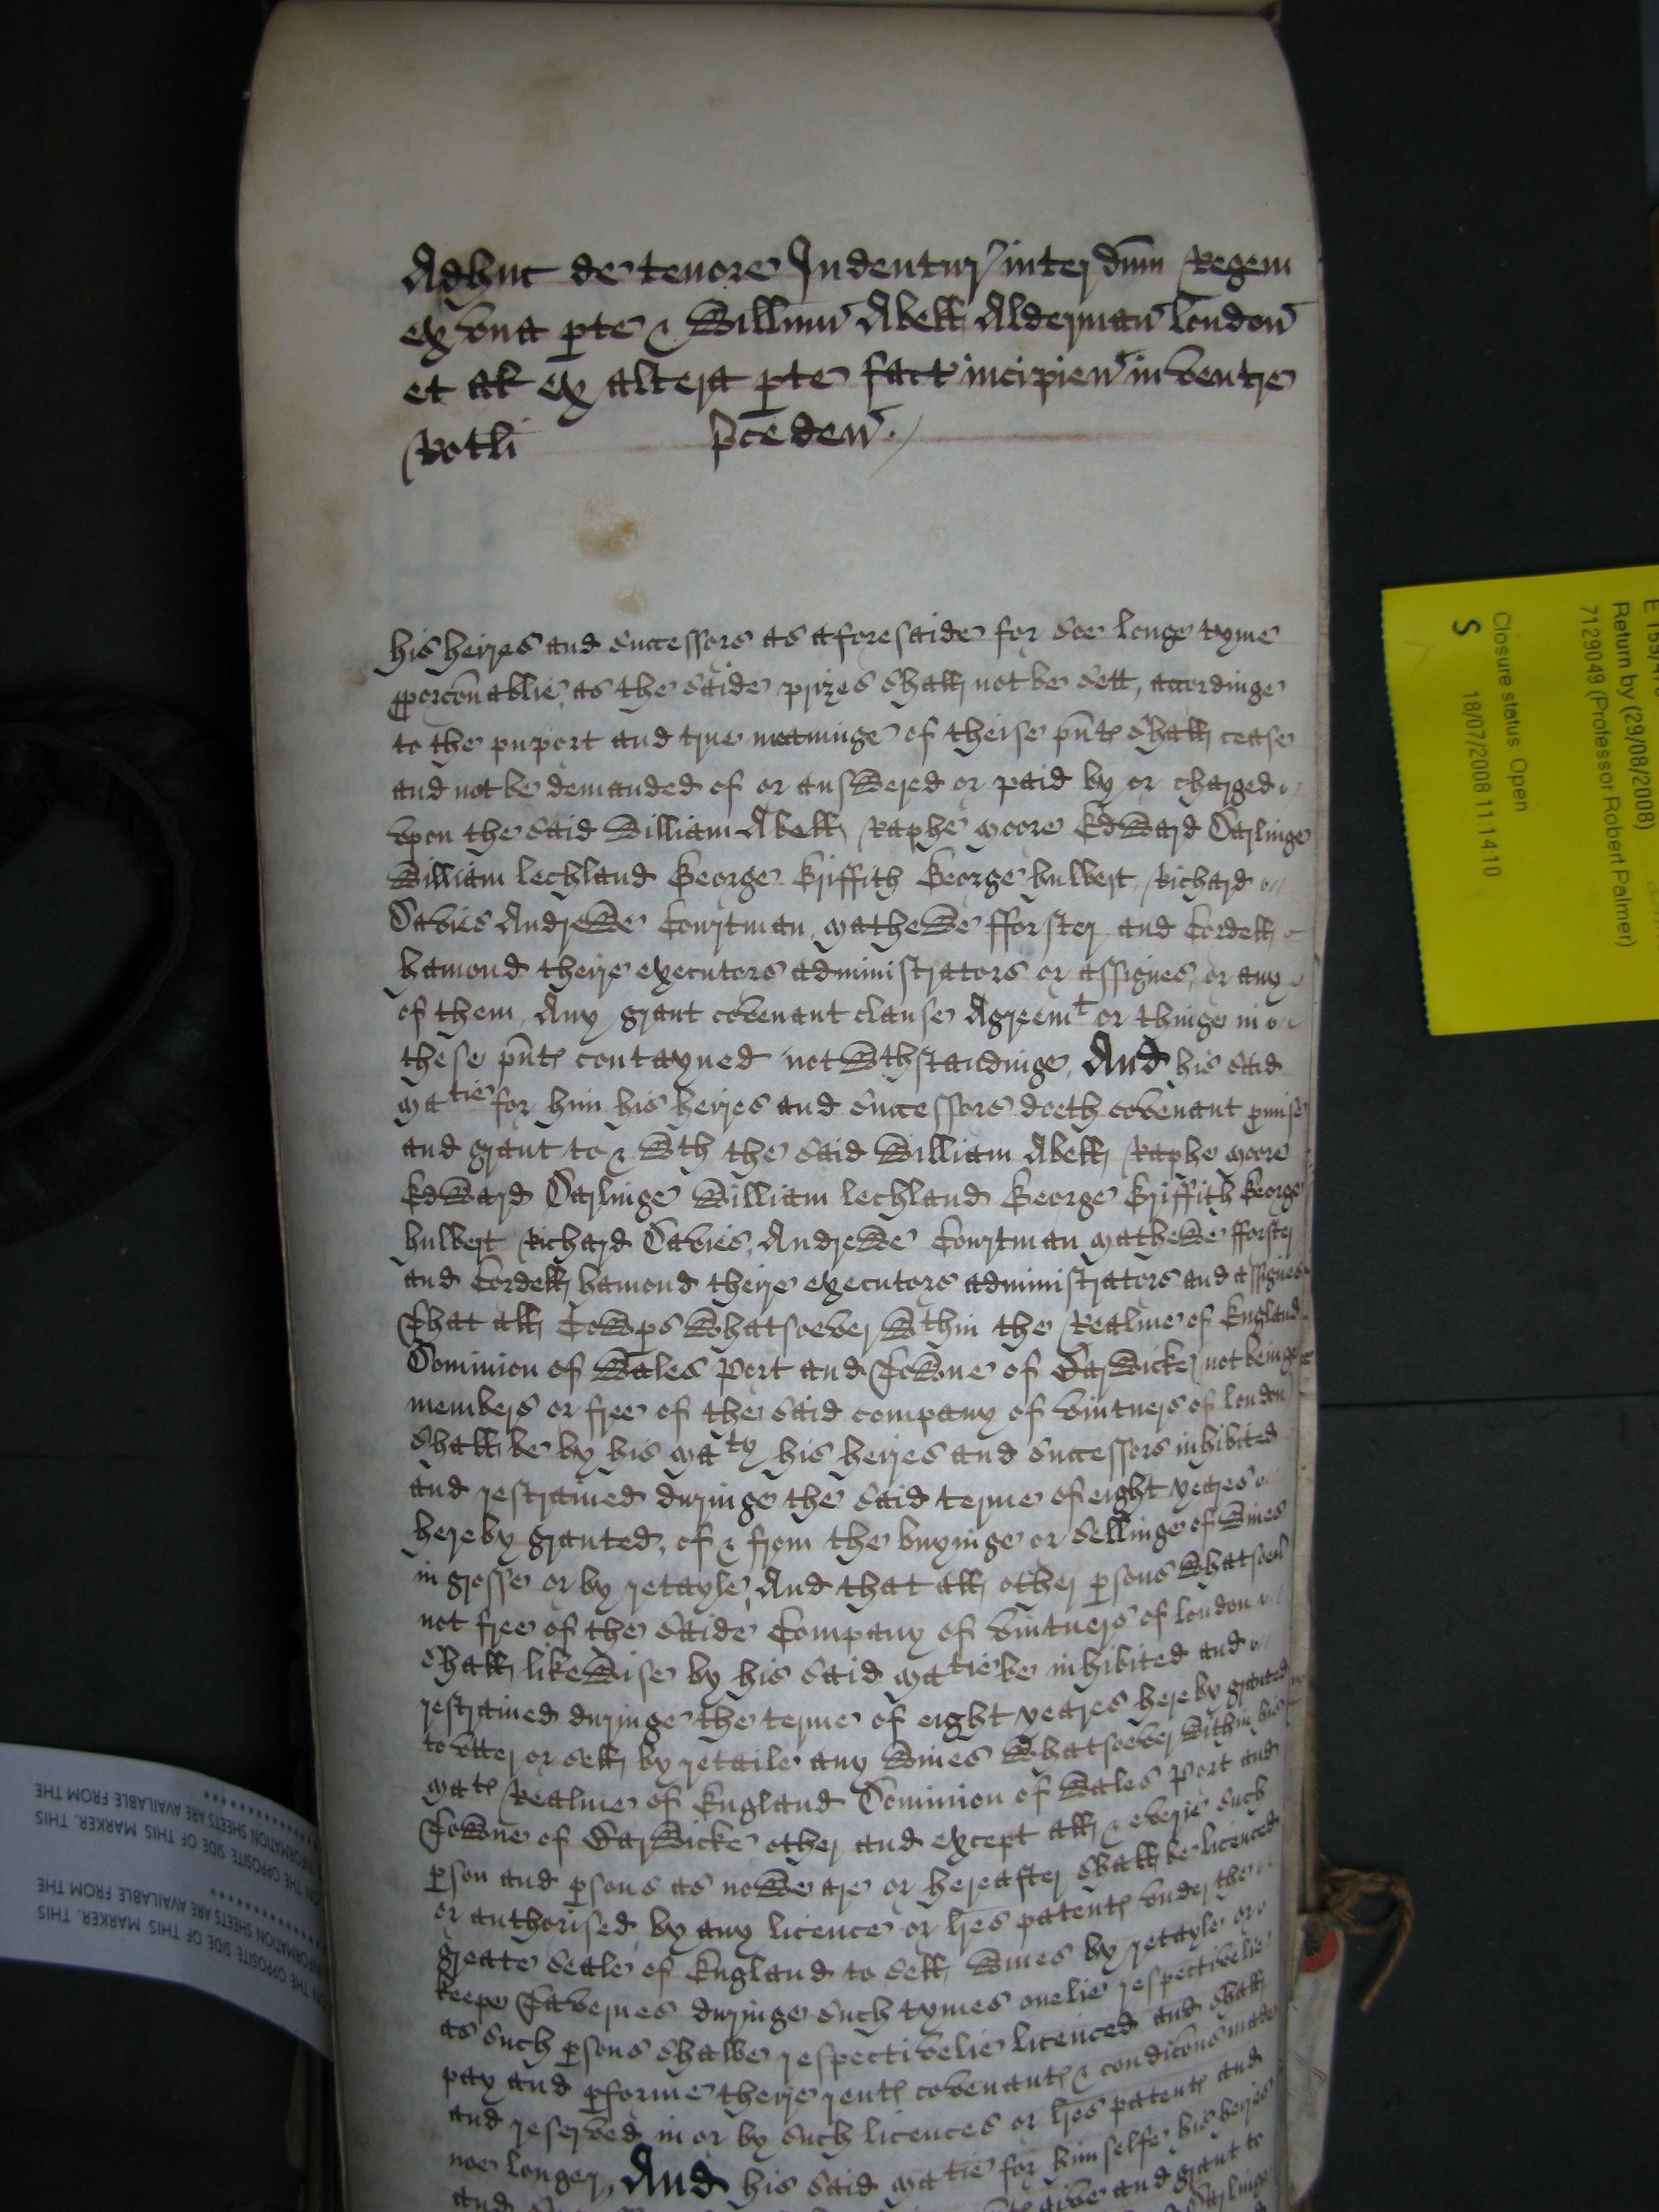 Adhuc de tenore Indentur' inter dnm Regem
ex una pte & Willmm Abell Alderman London
et al ex altera pte fact incipien in ventre
Rotli pceden.
his heires and successors as aforesaide for soe longe tyme
pporconablie, as the saide prizes shall not be sett, accordinge
to the purport and true meaninge of theise pnts shall cease
and not be demanded of or answered or paid by or charged
upon the said William Abell, Raphe Moore Edward Darlinge
William Lechland George Griffith George Hulbert, Richard
Davies Andrewe Courtman, Mathewe fforster and Cordell
Hamond theire executors administrators or assignes, or any
of them, Any grant covenant clause Agreemt or thinge in
these pnts contayned notwthstandinge, And his said
Matie for him his heires and successors doeth covenant pmise
and grant to & wth the said William Abell, Raphe Moore
Edward Darlinge William Lechland George Griffith George
Hulbert Richard Davies, Andrewe Courtman Mathewe fforster
and Cordell Hamond theire executors administrators and assignes
That all Cowps whatsoever wthin the Realme of England
Dominion of Wales Port and Towne of Barwicke not beinge
members or free of the said company of Vintners of London
shall be by his Maty his heires and successors inhibited
and restrained duringe the said terme of eight yeares
hereby granted, of & from the buyinge or sellinge of wines
in grosse or by retayle, And that all other psons whatsoeu
not free of the saide Company of Vintners of London
shall likewise by his said Matie be inhibited and
restrained duringe the terme of eight yeares hereby granted
to utter or sell by retaile any wines whatsoever within his
Mats Realme of England Dominion of Wales Port and
Towne of Barwicke other and except all & everie such
pson and psons as nowe are or hereafter shall be licenced
or authorised by any licence or lres patents under the
greate Seale of England to sell wines by retayle or
keepe Tavernes duringe such tymes onelie respectivelie
as such psons shalbe respectivelie licenced and shall
pay and pforme theire rents covenants & condicons made
and reserved in or by such licences or lres patents and
noe longer, And his said Matie for himselfe his heires
and give and grant to
Darlinge
Return by (29/08/2008)
7129049 (Professor Robert Palmer)
Closure status: Open
18/07/2008 11:14:10
S
ON THE OPPOSITE SIDE OF THIS MARKER. THIS
INFORMATION SHEETS ARE AVAILABLE FROM THE
ON THE OPPOSITE SIDE OF THIS MARKER. THIS
INFORMATION SHEETS ARE AVAILABLE FROM THE